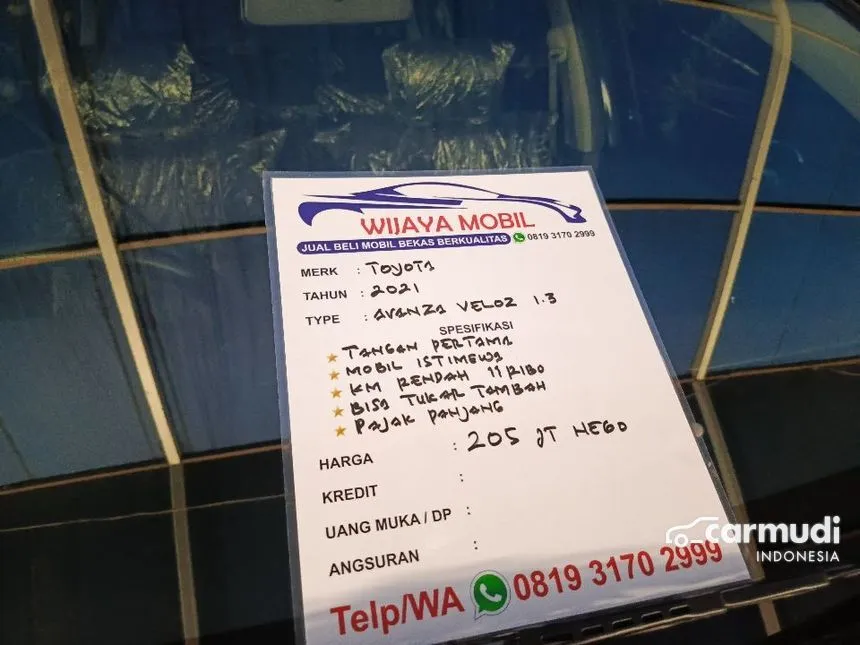 WIJAYA MOBIL
JUAL BELI MOBIL BEKAS BERKUALITAS 0819 3170 2999
MERK : TOYOTA
TAHUN : 2021
TYPE : AVANZA VELOZ 1.3
SPESIFIKASI
TANGAN PERTAMA
MOBIL ISTIMEWA
KM RENDAH 11 RIBO
BISA TUKAR TAMBAH
PAJAK PANJANG
HARGA : 205 JT NEGO
KREDIT :
UANG MUKA / DP :
ANGSURAN :
Telp/WA 0819 3170 2999
carmudi
INDONESIA